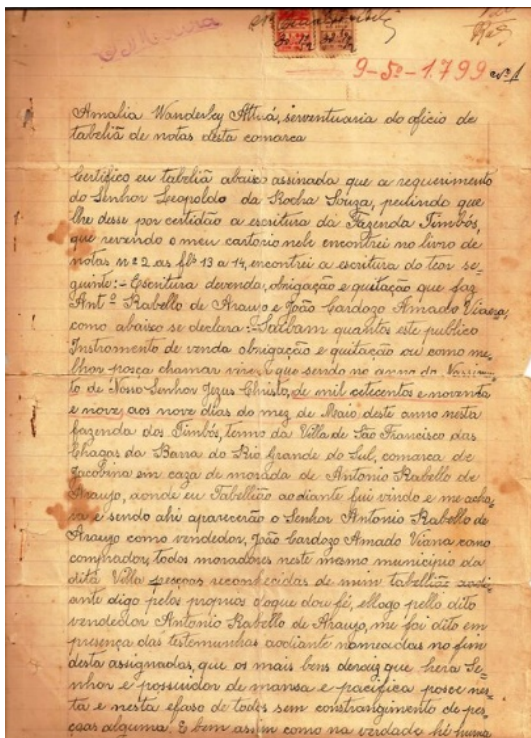 9-5º-1.799 nº 1
Amalia Wanderley Attuá, serventuaria do oficio de
tabeliã de notas desta comarca
Certifico eu tabeliã abaixo assinada que a requerimento
do Senhor Leopoldo da Rocha Souza, pedindo que
lhe desse por certidão a escritura da Fazenda Timbós,
que revendo o meu cartorio nele encontrei no livro de
notas nº 2 as flº 13 a 14, encontrei a escritura do teor se-
guinte:- Escritura devenda, obrigação e quitação que faz
Antº Rabello de Araujo e João Cardozo Amado Viana,
como abaixo se declara:- Saibam quantos este publico
Instromento de venda obrigação e quitação ou como me-
lhor posça chamar virem que sendo no anno do Nascim-
to de Nosso Senhor Jezus Christo, de mil cetecentos e noventa
e nove, aos nove dias do mez de Maio deste anno nesta
fazenda dos Timbós, termo da Villa de São Francisco das
Chagas da Barra do Rio Grande do Sul, comarca de
Jacobina em caza de morada de Antonio Rabello de
Araujo, aonde eu Tabellião aodiante fui vindo e me acha-
va e sendo ahi aparecerão o Senhor Antonio Rabello de
Araujo como vendedor, João Cardozo Amado Viana como
comprador, todos moradores neste mesmo municipio da
dita Villa pesçoas reconhecidas de mim tabelliãe aodi-
ante digo pelos proprios doque dou fé, ellogo pello dito
vendedor Antonio Rabello de Araujo, me foi dito em
presença das testemunhas aodiante nomeadas no fim
desta assignadas, que os mais bens deraiz que hera Se-
nhor e possuidor de mansa e pacifica posce nes-
ta e nesta efaso de todos sem constrangimento de pes-
çoas alguma. E bem assim como na verdade hé huma